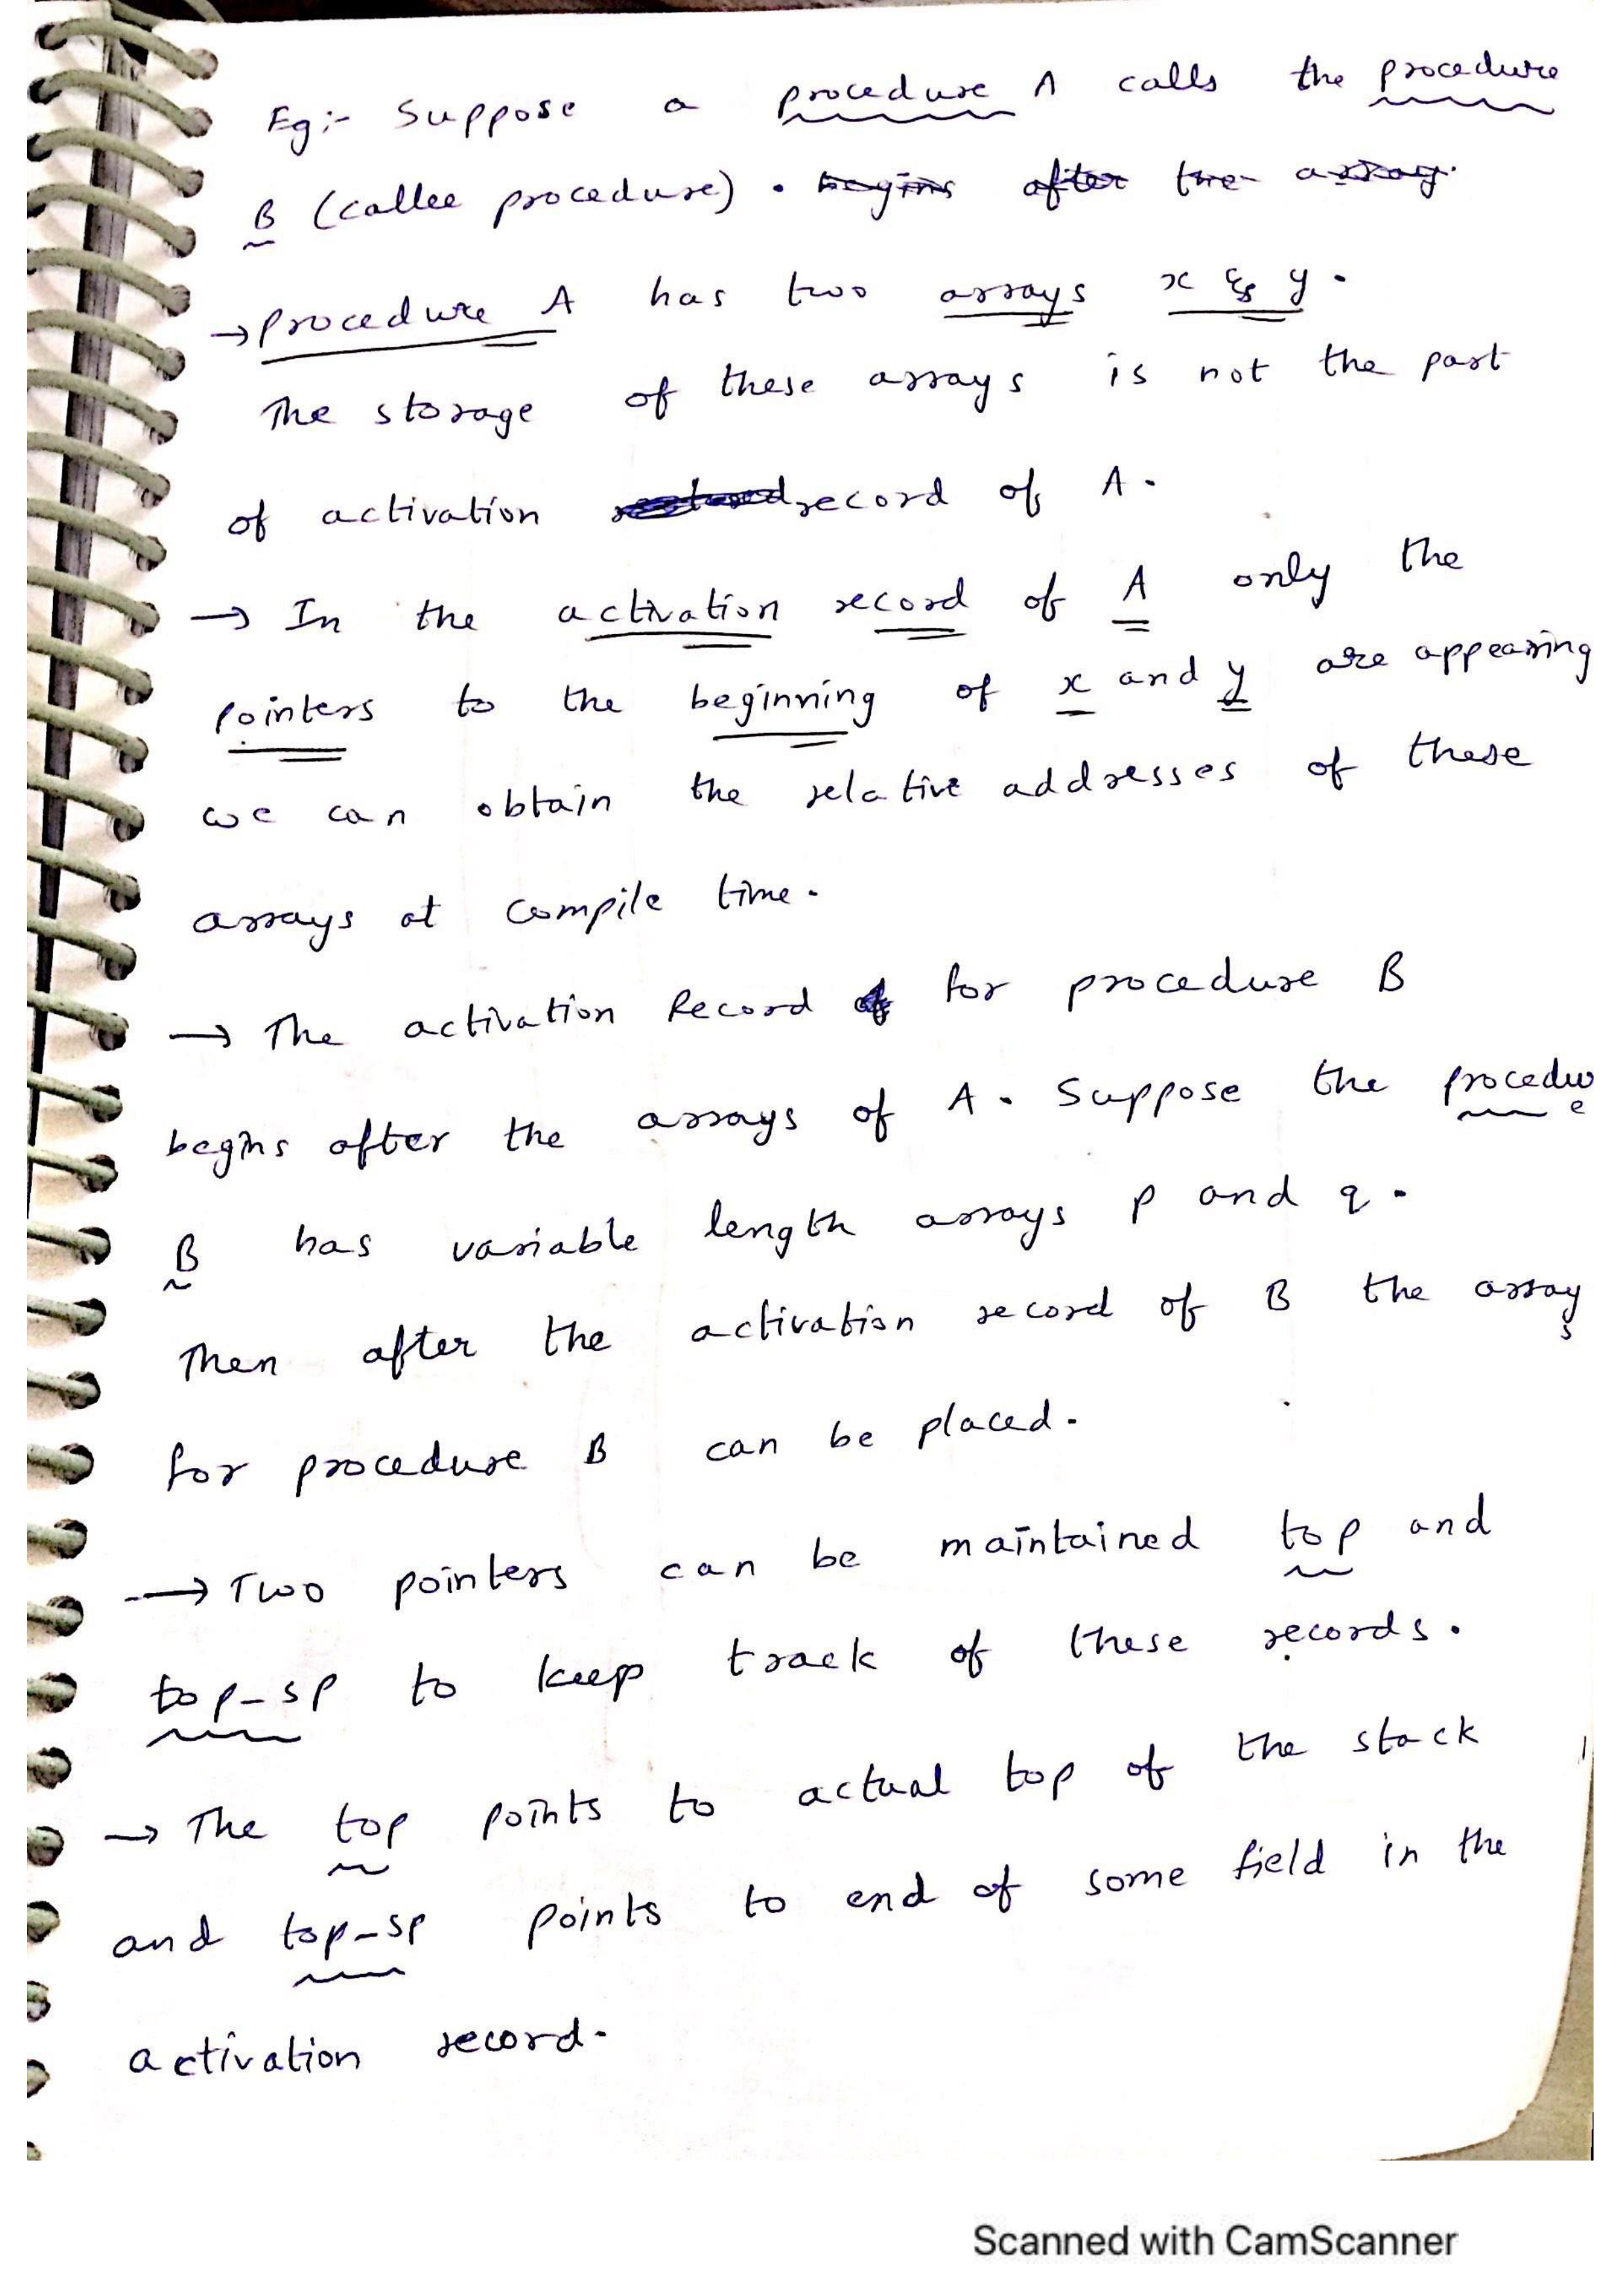 Eg:- Suppose a procedure A calls the procedure
B (callee procedure) . begins after the array.
→ procedure A has two arrays x & y .
The storage of these arrays is not the part
of activation record of A .
→ In the activation record of A only the
pointers to the beginning of x and y are appearing
we can obtain the relative addresses of these
arrays at compile time .
→ The activation Record for procedure B
begins after the arrays of A . Suppose the procedure
B has variable length arrays p and q .
Then after the activation record of B the arrays
for procedure B can be placed .
→ Two pointers can be maintained top and
top-sp to keep track of these records .
→ The top points to actual top of the stack
and top-sp points to end of some field in the
activation record .
Scanned with CamScanner